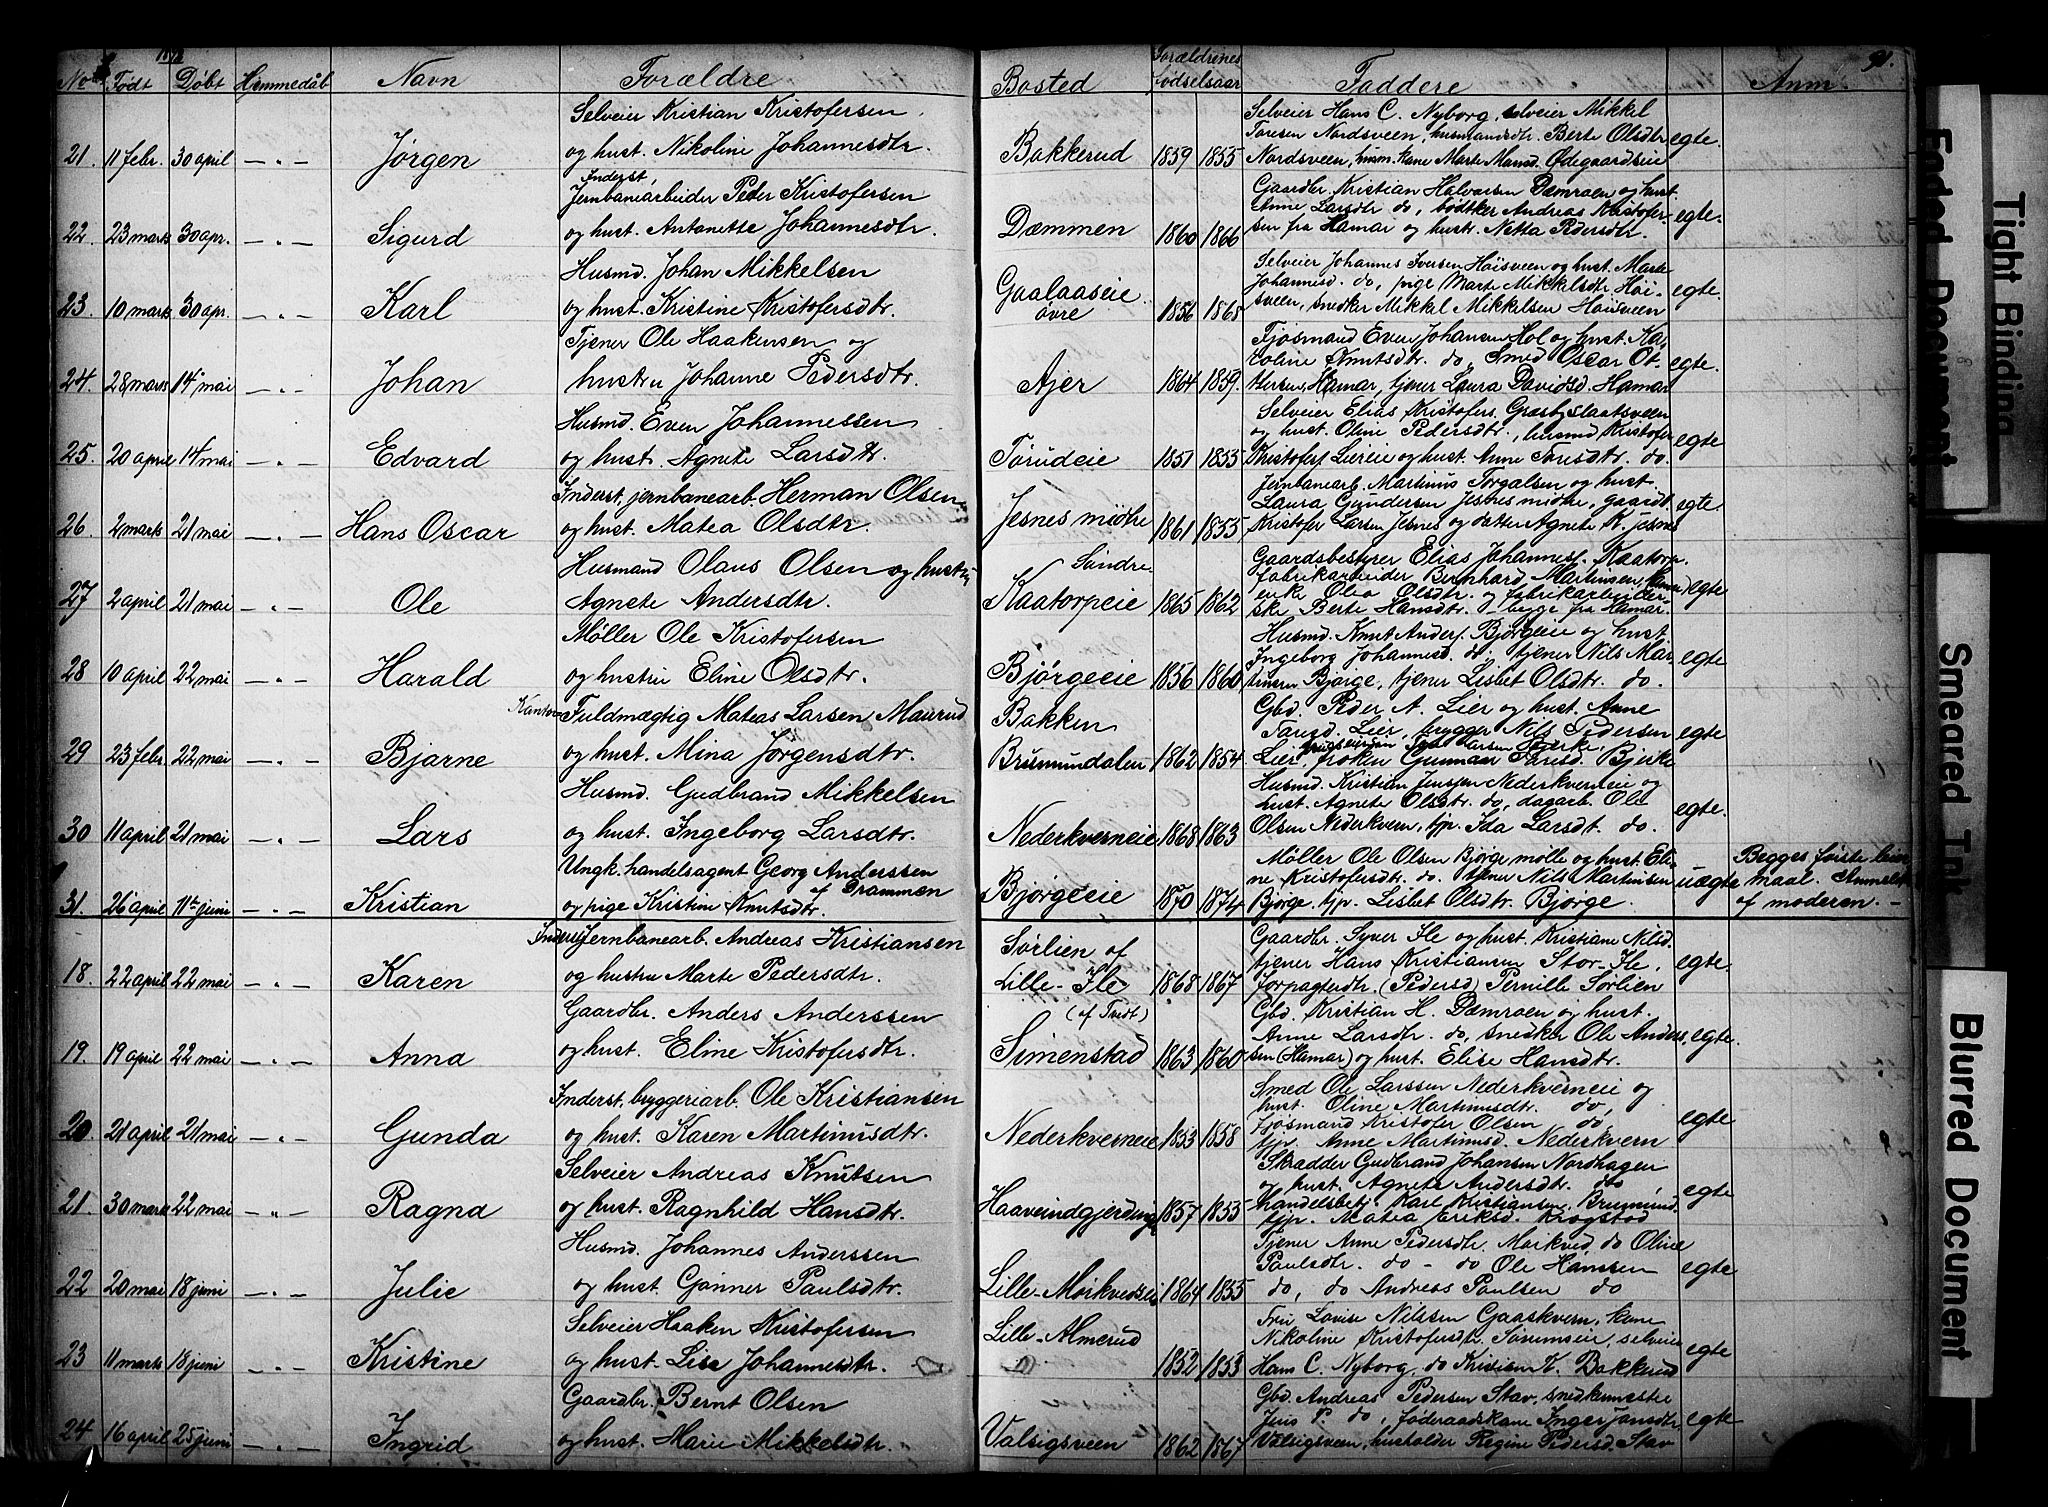 91.
No Født Døbt Hjemmedåb Navn Forældre Bosted Forældrenes fødselsaar Faddere Anm.
Selveier Kristian Kristofersen
21. 11 febr. 30 april —"— Jørgen og hust. Nikoline Johannesdtr. Bakkerud 1859 1855
Selveier Hans C. Nyborg, selveier Mikkel
Toresen Nordsveen, husmandsdtr. Berte Olsdtr egte.
Nordsveen, husm. kone Marte Ødegaardseie
Inderst,
Jernbanearbeider Peder Kristofersen
22. 23 marts 30 apr. —"— Sigurd og hust. Antonette Johannesdtr. Dæmmen 1860 1866
Gaardbr. Kristian Halvorsen Dæmroen og hust.
Anne Larsdtr do, bødtker Andreas Kristofer- egte.
sen fra Hamar og hustr. Netta Pedersdtr.
Husmd. Johan Mikkelsen
23. 10 marts 30 apr. —"— Karl og hust. Kristine Kristofersdtr. Gaalaaseie øvre 1856 1868
Selveier Johannes Iversen Høisveen og hust. Marte
Johannesd. do, pige Marte Mikkelsdtr Høi- egte.
sveen, snedker Mikkel Mikkelsen Høisveen
Tjener Ole Haakensen og
24. 28 marts 14 mai —"— Johan hustru Johanne Pedersdtr. Ajer 1864 1859.
Fjøsmand Even Johansen Hol og hust. Ka-
roline Knutsdtr. do, Smed Oscar Ot- egte.
tersen, Hamar, tjener Laura Davidsd. Hamar
Husmd. Even Johannessen
25. 20 april 14 mai —"— Edvard og hust. Agnete Larsdtr. Torudeie 1851 1855
Selveier Elias Kristofers. Græsbyslaatsveen
og hust. Oline Pedersdtr., husmd Kristofer egte
Kristofers. Liereie og hust. Anne Taresdtr. do.
Inderst, jernbanearb. Herman Olsen
26. 2 marts 21 mai —"— Hans Oscar og hust. Matea Olsdtr. Jesnes midtre 1861 1855
Jernbanearb. Martinus Torgalsen og hust.
Laura Gundersen Jesnes midtre, gaardt. egte.
Kristofer Larsen Jesnes og datter Agnete K. Jesnes
Husmand Olaus Olsen og hustru
27 2 april 21 mai —"— Ole Agnete Andersdtr. Søndre Kaatorpeie 1865 1862
Gaardsbestyrer Elias Johannes. Kaatorp.
fabrikarbeider Bernhard Martinsen,
enke Olea Olsdtr. og fabrikarbeider- egte
ske Berte Hansdtr. - begge fra Hamar.
Møller Ole Kristofersen
28 10 april 22 mai —"— Harald og hustru Eline Olsdtr. Bjørgeeie 1856 1860
Husmd. Knut Anders. Bjørgeeie og hust.
Ingeborg Johannesd. do. tjener Nils Mar- egte
tinsen Bjørge, tjener Lisbet Olsdtr. do.
Kontor Fuldmægtig Mateas Larsen Maurud
29 23 febr. 22 mai —"— Bjarne og hust. Mina Jørgensdtr. Bakken Brumunddalen 1862 1854.
Gbd. Peder A. Lier og hust. Anne
Taresd. Lier, brygger Nils Pedersen egte
Lier, frøken Gunnar Taresd. Bjerke
Husmd. Gudbrand Mikkelsen
30 11 april 21 mai —"— Lars og hust. Ingeborg Larsdtr. Nederkverneie 1868 1863
Husmd. Kristian Jensen Nederkverneie og
hust. Agnete Olsdtr. do, dagarb. Ole egte.
Olsen Nederkvern, tjp. Ida Larsdt. do.
Ungk. handelsagent Georg Anderssen af Drammen
31. 26 april 11te juni —"— Kristian og pige Kristine Knutsdtr. Bjørgeeie 1870 1874
Møller Ole Olsen Bjørge mølle og hust. Eli-
ne Kristofersdtr. do. tjener Nils Martinsen uegte
Bjørge, tjp. Lisbet Olsdtr. Bjørge.
Begges første leier-
maal. Anmeldt
af moderen. —
Inderst, Jernbanearb. Andreas Kristiansen
18. 22 april 22 mai —"— Karen og hustru Marte Pedersdtr. Sørlien af Lille-Ile 1868 1867
Gaardbr. Syver Ile og hust. Kristiane Nilsd.
tjener Hans Kristiansen Stor-Ile, egte.
forpagterdtr. (Pedersd) Pernille Sørlien
Gaardbr. Anders Anderssen
19. 19 april 22 mai —"— Anna og hust. Eline Kristofersdtr. (af Tvedt) Simenstad 1863 1860
Gbd. Kristian H. Dæmroen og hust.
Anne Larsdtr. do, snedker Ole Anders- egte.
sen (Hamar) og hust. Elise Hansdtr.
Inderst, bryggeriarb. Ole Kristiansen
20. 21 april 21 mai —"— Gunda og hust. Karen Martinusdtr. Nederkverneie 1853 1858
Smed Ole Larssen Nederkverneie og
hust. Oline Martinusdtr. do,
fjøsmand Kristofer Olsen do, egte
tjp. Anne Martinusd. Nederkvern
Selveier Andreas Knutsen
21. 30 marts 22 mai —"— Ragna og hust. Ragnhild Hansdtr. Haaveindgjerdinge 1857 1855
Skrædder Gudbrand Johansen Nordhagen
og hust. Agnete Andersdtr. do, egte
handelsbetj. Karl Kristiansen, Brumund.
tjp. Matea Eriksd. Krogstad
Husmd. Johannes Anderssen
22 20 mai 18 juni —"— Julie og hust. Gønner Paulsdtr. Lille-Mørkvedseie 1864 1855
Tjener Anne Pedersdtr. Mørkved, do Oline
Paulsdtr. do - do Ole Hanssen egte
do, do Andreas Paulsen do
Selveier Haaken Kristofersen
23 11 marts 18 juni —"— Kristine og hust. Lise Johannesdtr. Lille-Almerud 1852 1853
Fru Lovise Nilssen Gaaskvern, kone
Nikoline Kristofersdtr. Sørumseie, selveier egte
Hans C. Nyborg, do Kristian K. Bakkerud
Gaardbr. Bernt Olsen
24 16 april 25 juni —"— Ingrid og hust. Marie Mikkelsdtr. Valsigsveen 1862 1867
Gbd. Andreas Pedersen Stav, snedkermester
Jens P. do, føderaadskone Inger Jonsdtr egte
Valsigsveen, husholder Regine Pedersd. Stav
Tight Binding
Faded Document
Smeared Ink
Blurred Document